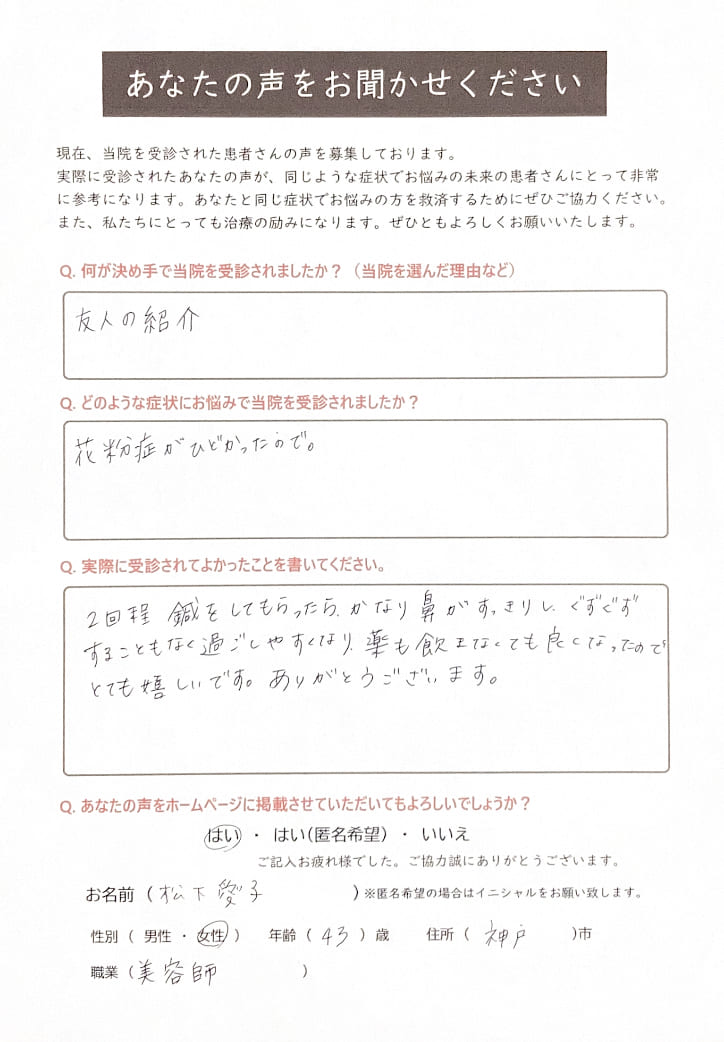 あなたの声をお聞かせください
現在、当院を受診された患者さんの声を募集しております。
実際に受診されたあなたの声が、同じような症状でお悩みの未来の患者さんにとって非常
に参考になります。あなたと同じ症状でお悩みの方を救済するためにぜひご協力ください。
また、私たちにとっても治療の励みになります。ぜひともよろしくお願いいたします。
Q. 何が決め手で当院を受診されましたか？（当院を選んだ理由など）
友人の紹介
Q. どのような症状にお悩みで当院を受診されましたか？
花粉症がひどかったので。
Q. 実際に受診されてよかったことを書いてください。
2回程 鍼をしてもらったら、かなり鼻がすっきりし、ぐずぐず
することもなく過ごしやすくなり、薬も飲まなくても良くなったので
とても嬉しいです。ありがとうございます。
Q. あなたの声をホームページに掲載させていただいてもよろしいでしょうか？
はい ・ はい（匿名希望）・ いいえ
ご記入お疲れ様でした。ご協力誠にありがとうございます。
お名前（松下愛子）※匿名希望の場合はイニシャルをお願い致します。
性別（ 男性 ・ 女性 ） 年齢（ 43 ）歳 住所（ 神戸 ）市
職業（美容師 ）